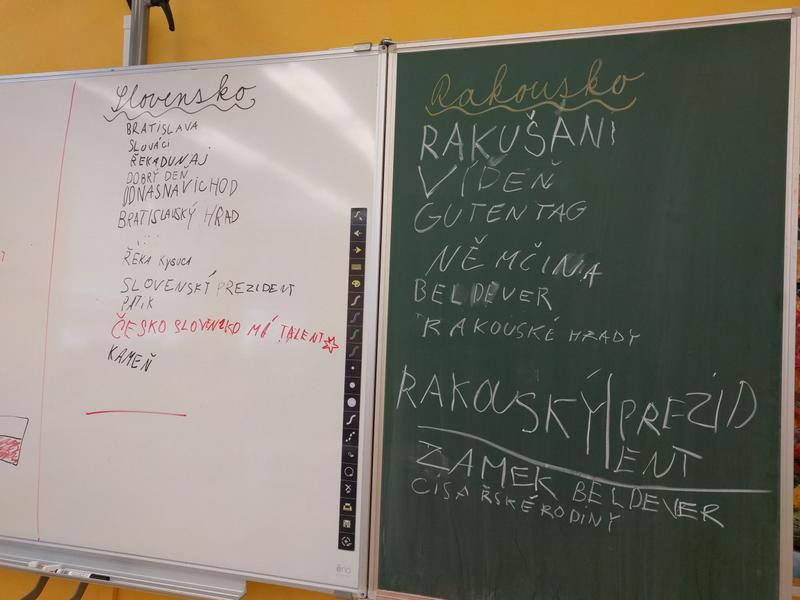 Slovensko
BRATISLAVA
SLOVÁCI
ŘEKADUNAJ
DOBRÝ DEN
IDNASNAVÍCHOD
BRATISLAVSKÝ HRAD
ŘEKA KYSUCA
SLOVENSKÝ PREZIDENT
PATIK
ČESKO SLOVENZKO MÁ TALENT
KAMEŇ
eno
Rakousko
RAKUŠANI
VÍDEŇ
GUTENTAG
NĚMČINA
BELDEVER
RAKOUSKÉ HRADY
RAKOUSKÝ PREZID
ENT
ZAMEK BELDEVER
CÍSAŘSKÉ RODINY